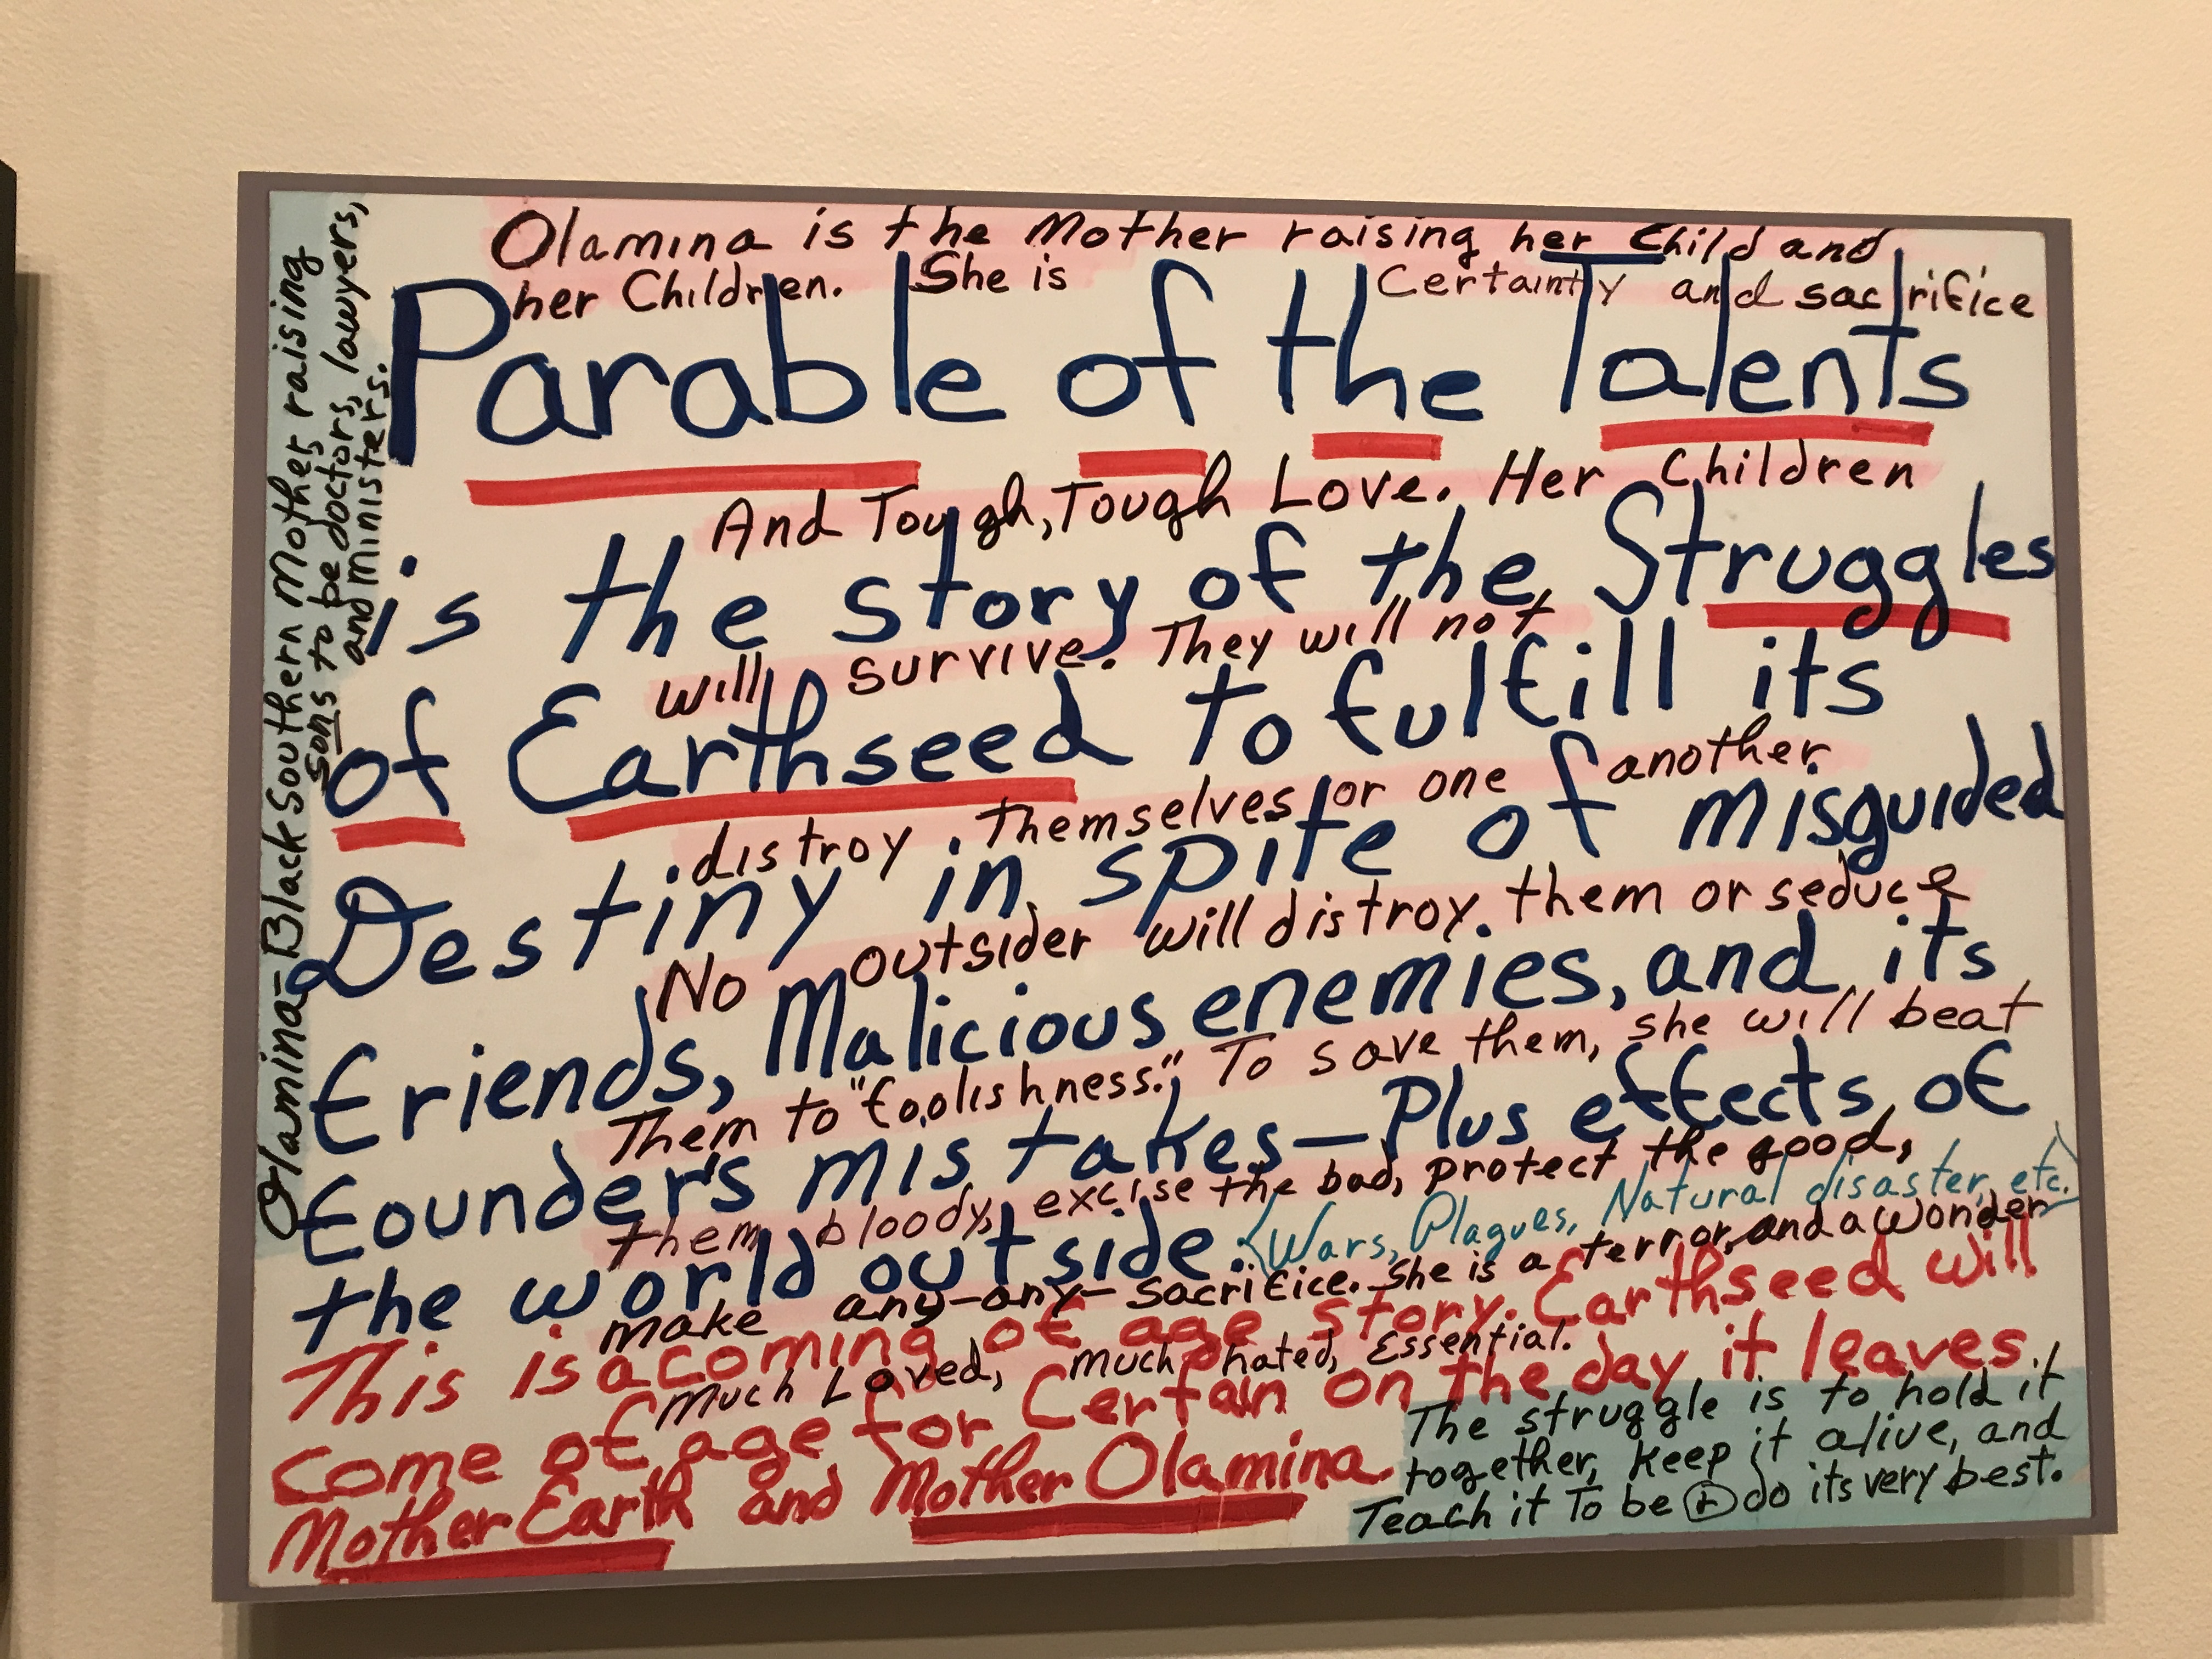 Olamina is the Mother raising her Child and
her Children. She is Certaintly and sacrifice
Parable of the Talents
And Tough, Tough Love. Her Children
is the story of the Struggles
will survive. They will not
of Earthseed to fulfill its
distroy themselves or one another
Destiny in spite of misguided
No outsider will distroy them or seduce
friends, Malicious enemies, and its
Them to "foolishness." To save them, she will beat
founder's mistakes—Plus effects of
them bloody, excise the bad, protect the good,
the world outside. (Wars, Plagues, Natural disaster, etc.)
make any-any-sacrifice. She is a terror, and a wonder
This is a coming of age story. Earthseed will
Much Loved, much hated, Essential.
come of age for Certain on the day it leaves
Mother Earth and Mother Olamina.
The struggle is to hold it
together, keep it alive, and
Teach it To be & do its very best.
Olamina-Black Southern Mother raising
sons to be doctors, lawyers,
and ministers.